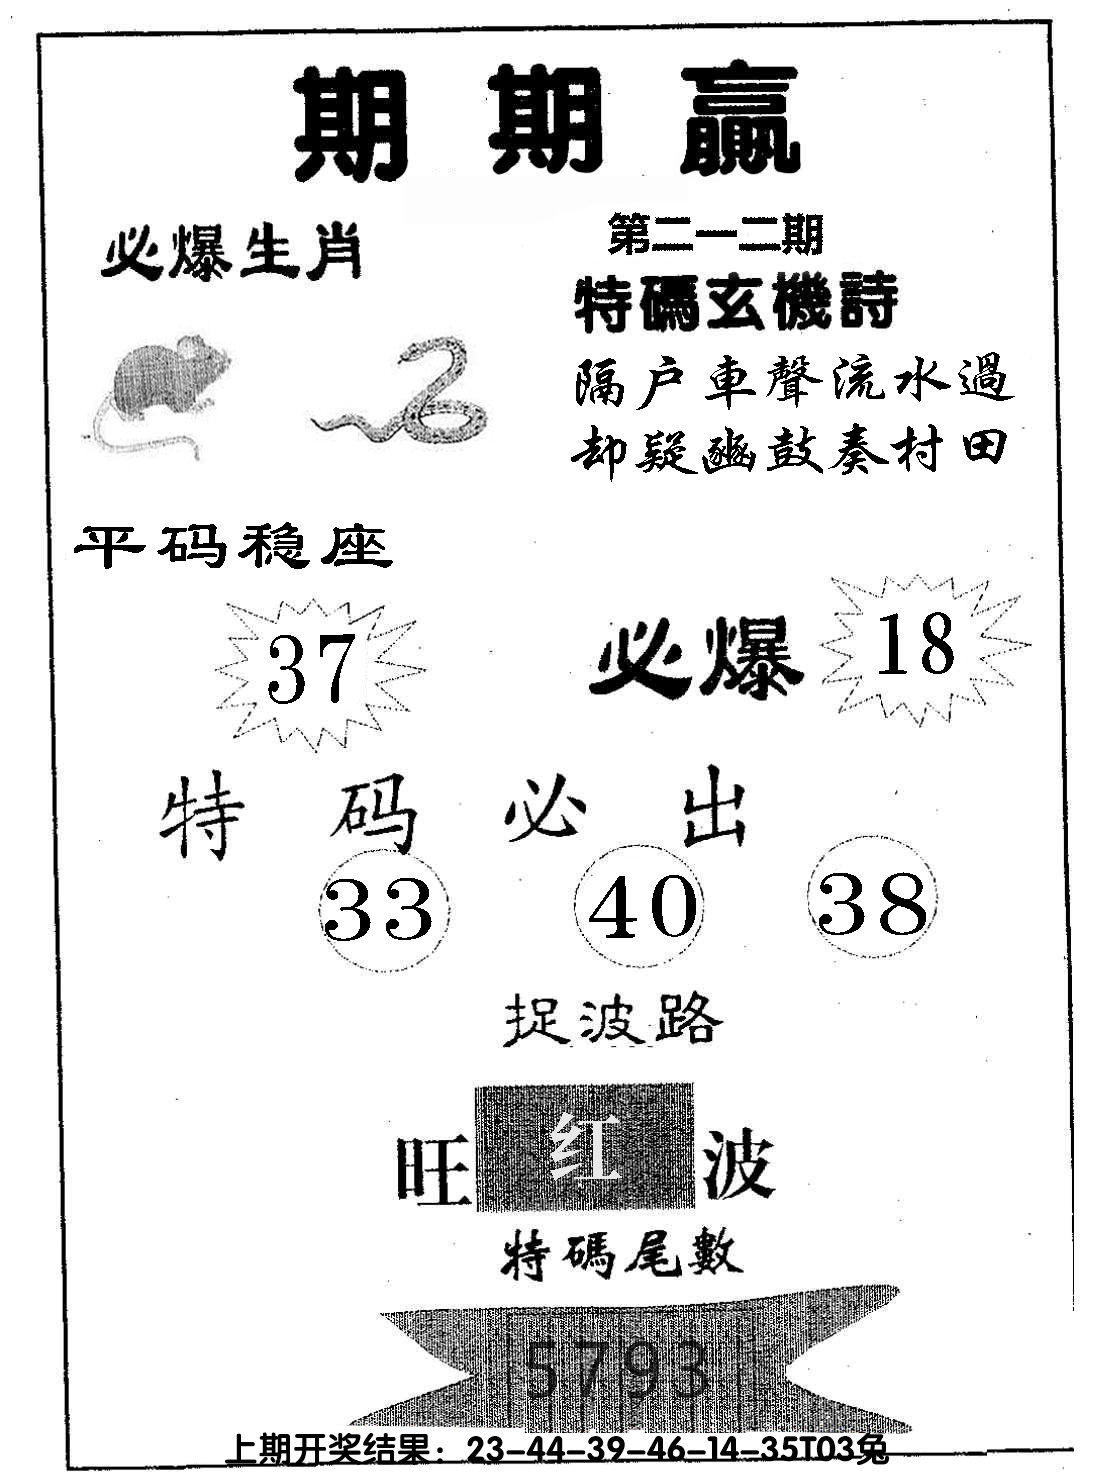 期期赢
必爆生肖
第二一二期
特碼玄機詩
隔户車聲流水過
却疑豳鼓奏村田
平码稳座
37
必爆 18
特码必出
33 40 38
捉波路
旺 红 波
特碼尾數
5793
上期开奖结果：23-44-39-46-14-35T03兔